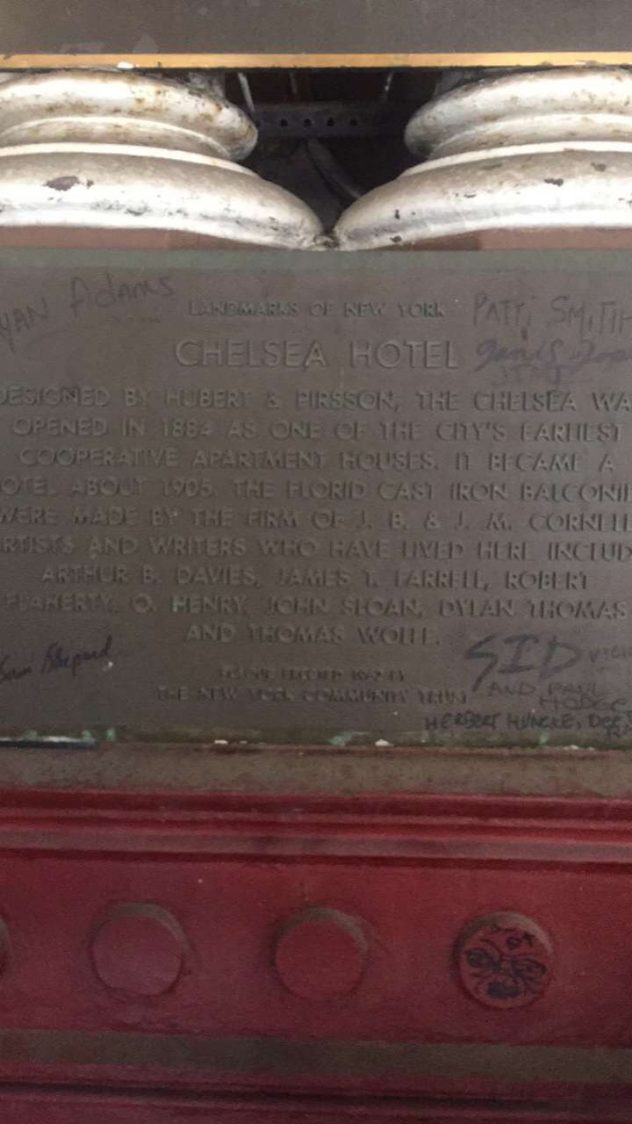 YAN Adams
LANDMARKS OF NEW YORK
PATTI SMITH
CHELSEA HOTEL
DESIGNED BY HUBERT & PIRSSON, THE CHELSEA WA
OPENED IN 1884 AS ONE OF THE CITY'S EARLIEST
COOPERATIVE APARTMENT HOUSES. IT BECAME A
OTEL ABOUT 1905. THE FLORID CAST IRON BALCONIE
WERE MADE BY THE FIRM OF J. B. & J. M. CORNELL
RTISTS AND WRITERS WHO HAVE LIVED HERE INCLUD
ARTHUR B. DAVIES, JAMES T. FARRELL, ROBERT
FLAHERTY, O. HENRY, JOHN SLOAN, DYLAN THOMAS
AND THOMAS WOLFE.
Sam Shepard
SID
PLAQUE ERECTED
THE NEW YORK COMMUNITY TRUST
AND PAUL
HERBERT HUNCKE, DEE